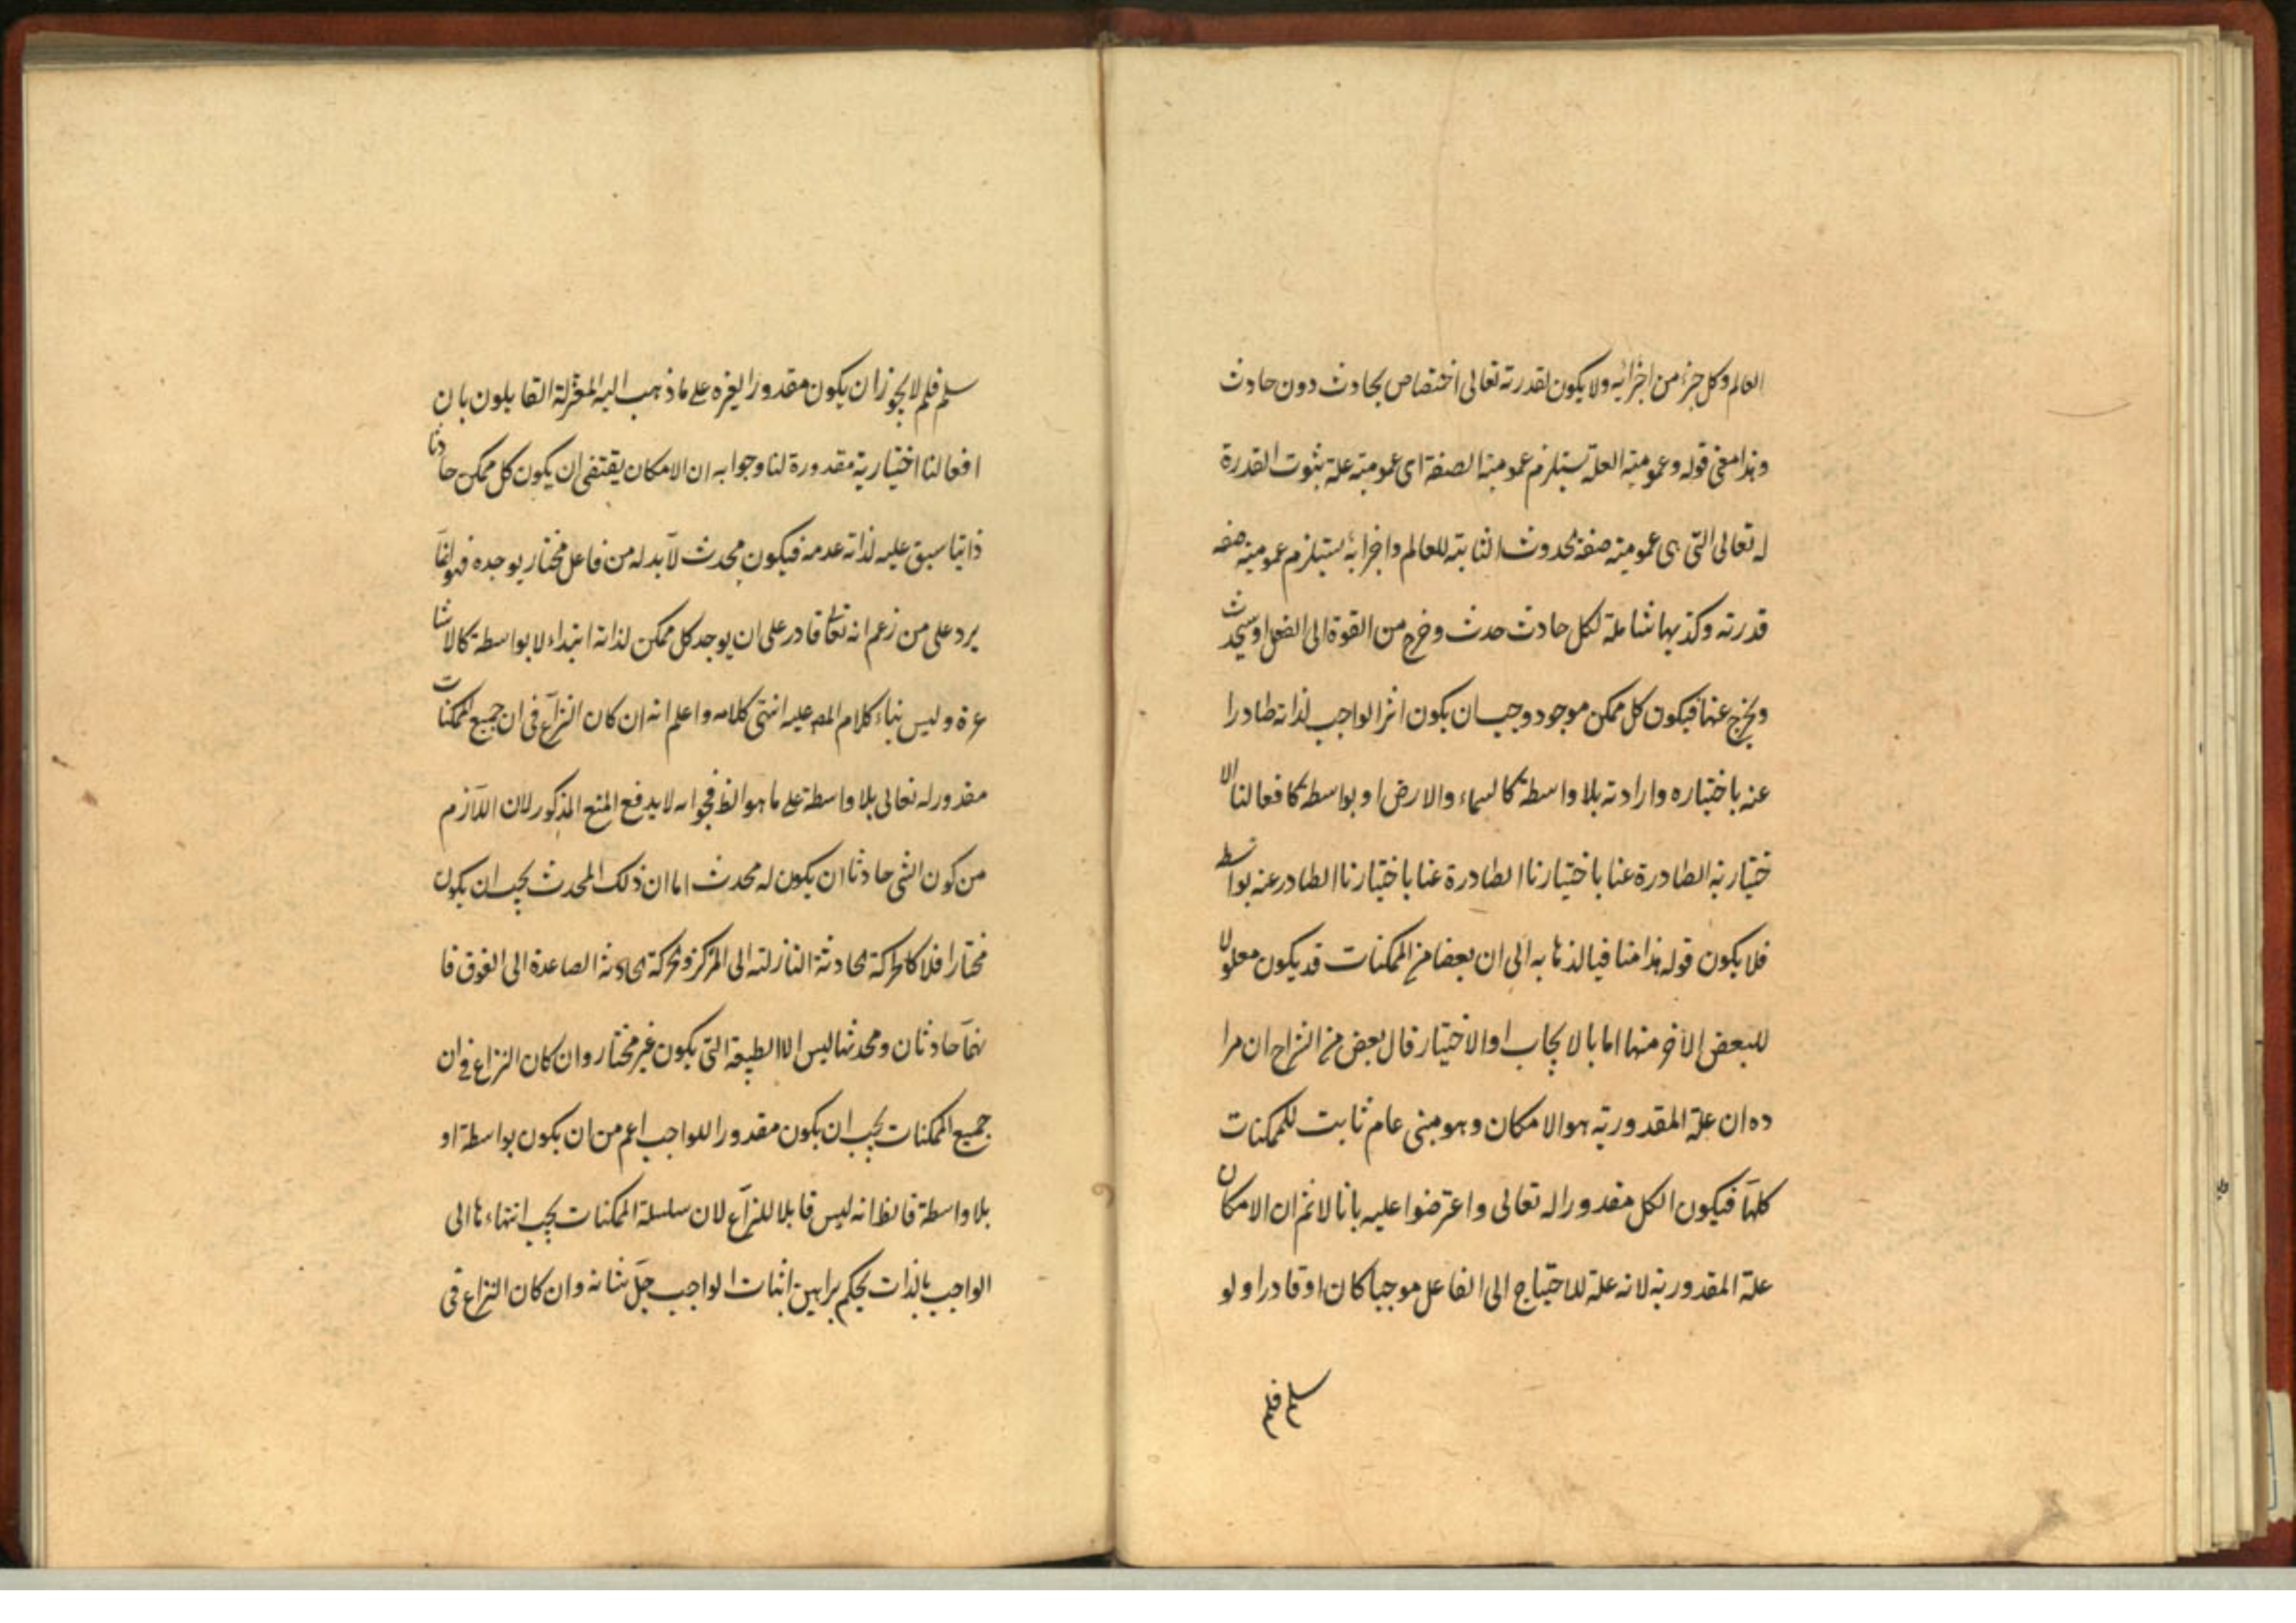 العالم وكل جزء من اجزائه ولا يكون لقدرته تعالى اختصاص بحادث دون حادث
وهذا معنى قوله وعمومية العلة تستلزم عمومية الصفة اى عمومية علة ثبوت القدرة
له تعالى التى هى عمومية صفة الحدوث الثابتة للعالم واجزائه يستلزم عمومية صفة
قدرته وكذبها شاملة لكل حادث حدث وخرج من القوة الى الفعل او سيحدث
ويخرج عنها فيكون كل ممكن موجود وجب ان يكون اثر الواجب لذاته صادرا
عنه باختياره وارادته بلا واسطة كالسماء والارض او بواسطة كافعالنا الا
ختيارية الصادرة عنا باختيارنا الصادرة عنا باختيارنا الصادر عنه بواسط
فلا يكون قوله هذا منافيا لذهابه الى ان بعضا من الممكنات قد يكون معلولا
للبعض الآخر منها اما بالايجاب او الاختيار قال بعض من الشراح ان مرا
ده ان علة المقدورية هو الامكان وهو مبنى عام ثابت للممكنات
كلها فيكون الكل مقدورا له تعالى واعترضوا عليه بانا لانم ان الامكان
علة المقدورية لانه علة للاحتياج الى الفاعل موجبا كان او قادرا ولو
سلم فلم
سلم فلم لا يجوز ان يكون مقدورا لغيره على ما ذهب اليه المعتزلة القايلون بان
افعالنا اختيارية مقدورة لنا وجوابه ان الامكان يقتضى ان يكون كل ممكن حادثا
ذاتيا سبق عليه لذاته عدمه فيكون محدث لابد له من فاعل مختار يوجده فهو انما
يرد على من زعم انه تعالى قادر على ان يوجد كل ممكن لذاته ابتداء لا بواسطة كالاشا
عرة وليس بناء كلام المصـ عليه انتهى كلامه واعلم انه ان كان النزاع فى ان جميع الممكنات
مقدور له تعالى بلا واسطة على ما هو الظ فجوابه لا يدفع المنع المذكور لان اللازم
من كون الشى حادثا ان يكون له محدث اما ان ذلك المحدث يجب ان يكون
مختارا فلا كالحركة الحادثة النازلة الى المركز والحركة الحادثة الصاعدة الى الفوق فا
نهما حادثان ومحدثهما ليس الا الطبيعة التى يكون غير مختار وان كان النزاع فى ان
جميع الممكنات يجب ان يكون مقدورا للواجب اعم من ان يكون بواسطة او
بلا واسطة فالظ انه ليس قابلا للنزاع لان سلسلة الممكنات يجب انتهاءها الى
الواجب بالذات بحكم براهين اثبات الواجب جل شانه وان كان النزاع فى